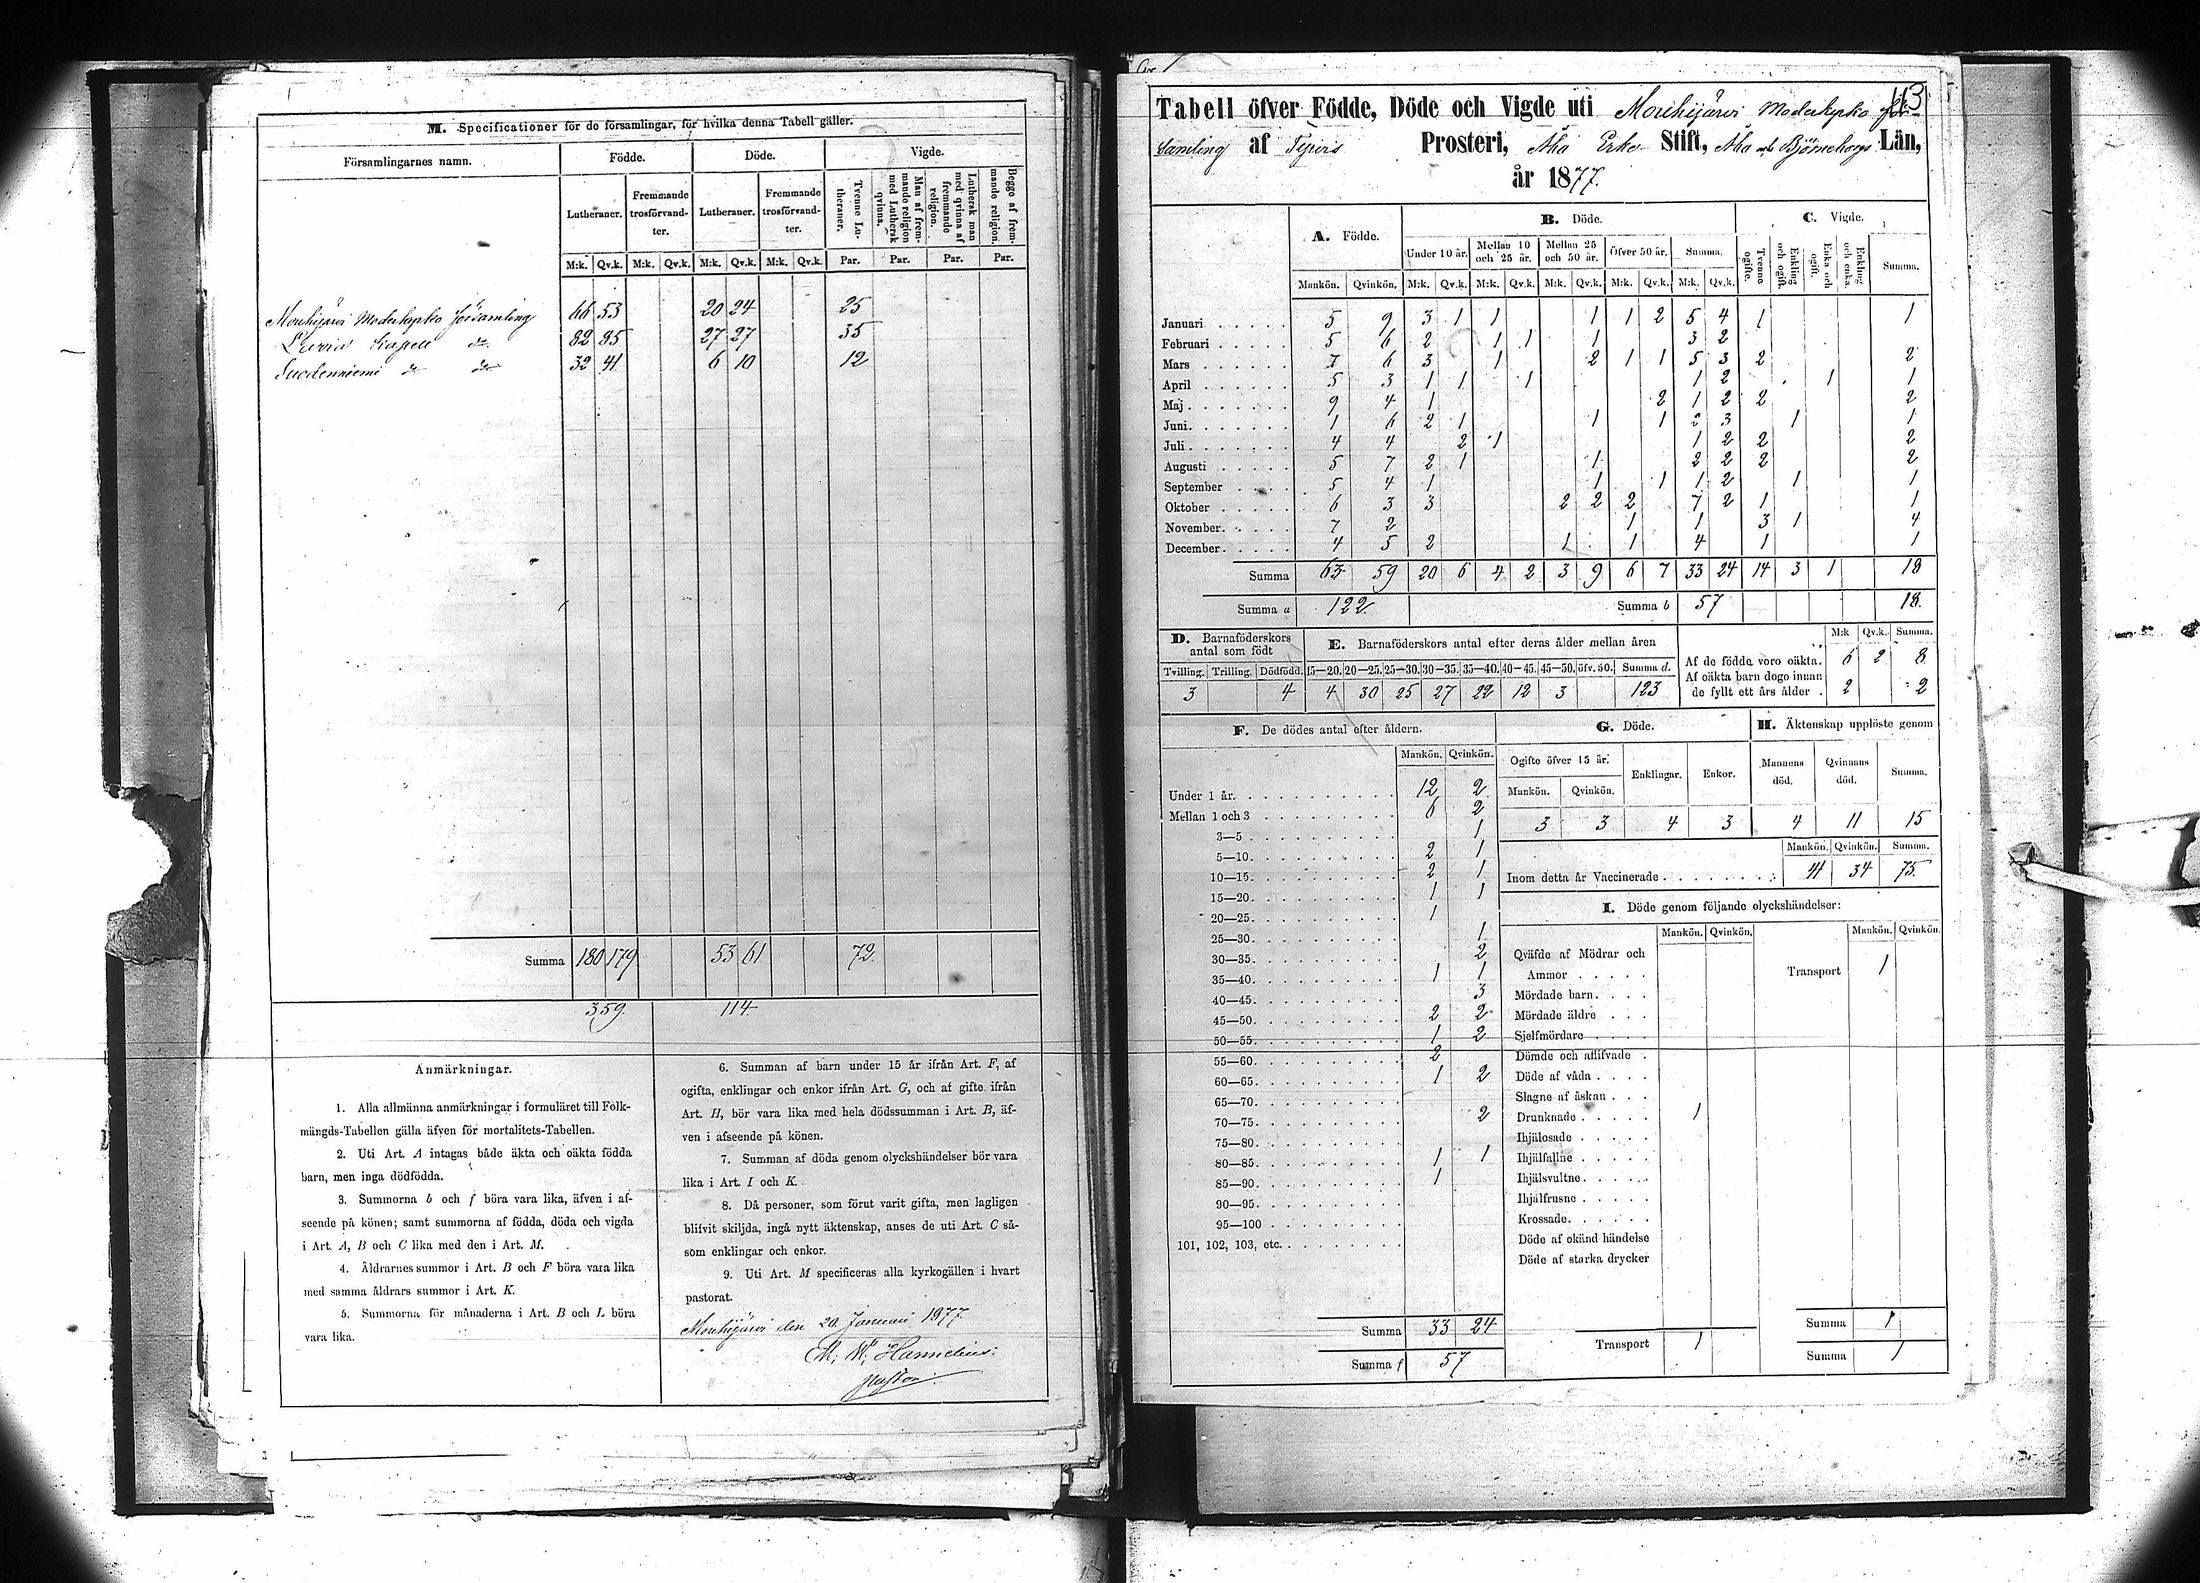 M. Specificationer för de församlingar, för hvilka denna Tabell gäller.
Församlingarnes namn. Födde. Döde. Vigde.
Lutheraner. Fremmande trosförvandter. Lutheraner. Fremmande trosförvandter. Tvenne Lutheraner. Man af fremmande religion med Luthersk qvinna. Luthersk man med qvinna af fremmande religion. Begge af fremmande religion.
M:k. Qv.k. M:k. Qv.k. M:k. Qv.k. M:k. Qv.k. Par. Par. Par. Par.
Mouhijärvi Moderkyrko församling 66 53 20 24 25
Lavia Kapell do 82 85 27 27 35
Suodenniemi do do 32 41 6 10 12
Summa 180 179 53 61 72
359. 114.
Anmärkningar.
1. Alla allmänna anmärkningar i formuläret till Folk-
mängds-Tabellen gälla äfven för mortalitets-Tabellen.
2. Uti Art. A intagas både äkta och oäkta födda
barn, men inga dödfödda.
3. Summorna b och f böra vara lika, äfven i af-
seende på könen; samt summorna af födda, döda och vigda
i Art. A, B och C lika med den i Art. M.
4. Åldrarnes summor i Art. B och F böra vara lika
med samma åldrars summor i Art. K.
5. Summorna för månaderna i Art. B och L böra
vara lika.
6. Summan af barn under 15 år ifrån Art. F, af
ogifta, enklingar och enkor ifrån Art. G, och af gifte ifrån
Art. H, bör vara lika med hela dödssumman i Art. B, äf-
ven i afseende på könen.
7. Summan af döda genom olyckshändelser bör vara
lika i Art. I och K.
8. Då personer, som förut varit gifta, men lagligen
blifvit skiljda, ingå nytt äktenskap, anses de uti Art. C så-
som enklingar och enkor.
9. Uti Art. M specificeras alla kyrkogällen i hvart
pastorat.
Mouhijärvi den 20 Januari 1877
M. W. Hannelius.
Pastor.
113
Tabell öfver Födde, Döde och Vigde uti Mouhijärvi Moderkyrko för-
samling af Tyrvis Prosteri, Åbo Erke Stift, Åbo och Björneborgs Län,
år 1877.
A. Födde. B. Döde. C. Vigde.
Under 10 år. Mellan 10 och 25 år. Mellan 25 och 50 år. Öfver 50 år. Summa. Tvenne ogifte. Enkling och ogift. Enka och ogift. Enkling och enka. Summa.
Mankön. Qvinkön. M:k. Qv.k. M:k. Qv.k. M:k. Qv.k. M:k. Qv.k. M:k. Qv.k.
Januari 5 9 3 1 1 1 1 2 5 4 1 1
Februari 5 6 2 1 1 1 3 2
Mars 7 6 3 1 2 1 1 5 3 2 2
April 5 3 1 1 1 1 2 1 1
Maj 9 4 1 2 1 2 2 2
Juni 1 6 2 1 1 1 2 3 1 1
Juli 4 4 2 1 1 2 2 2
Augusti 5 7 2 1 1 2 2 2 2
September 5 4 1 1 1 1 2 1 1
Oktober 6 3 3 2 2 2 7 2 1 1
November 7 2 1 1 3 1 4
December 4 5 2 1 1 4 1 1
Summa 63 59 20 6 4 2 3 9 6 7 33 24 14 3 1 18
Summa a 122. Summa b 57 18.
D. Barnaföderskors antal som födt
Tvilling. Trilling. Dödfödd.
3 4
E. Barnaföderskors antal efter deras ålder mellan åren
15—20. 20—25. 25—30. 30—35. 35—40. 40—45. 45—50. öfv. 50. Summa d.
4 30 25 27 22 12 3 123
M:k Qv.k. Summa.
Af de födda voro oäkta. 6 2 8
Af oäkta barn dogo innan
de fyllt ett års ålder 2 2
F. De dödes antal efter åldern.
Mankön. Qvinkön.
Under 1 år. 12 2
Mellan 1 och 3 6 2
3—5 1
5—10. 2 1
10—15. 2 1
15—20. 1 1
20—25. 1
25—30. 1
30—35. 2
35—40. 1 1
40—45. 3
45—50. 2 2
50—55. 1 2
55—60. 2
60—65. 1 2
65—70.
70—75. 2
75—80.
80—85. 1 1
85—90. 1
90—95.
95—100
101, 102, 103, etc.
Summa 33 24
Summa f 57
G. Döde.
Ogifte öfver 15 år. Enklingar. Enkor.
Mankön. Qvinkön.
3 3 4 3
H. Äktenskap upplöste genom
Mannens död. Qvinnans död. Summa.
4 11 15
Mankön. Qvinkön. Summa.
Inom detta år Vaccinerade 41 34 75.
I. Döde genom följande olyckshändelser:
Mankön. Qvinkön. Mankön. Qvinkön.
Qväfde af Mödrar och
Ammor
Transport 1
Mördade barn.
Mördade äldre
Sjelfmördare
Dömde och aflifvade
Döde af våda
Slagne af åskan
Drunknade 1
Ihjälosade
Ihjälfallne
Ihjälsvultne
Ihjälfrusne
Krossade.
Döde af okänd händelse
Döde af starka drycker
Summa 1
Transport 1
Summa 1